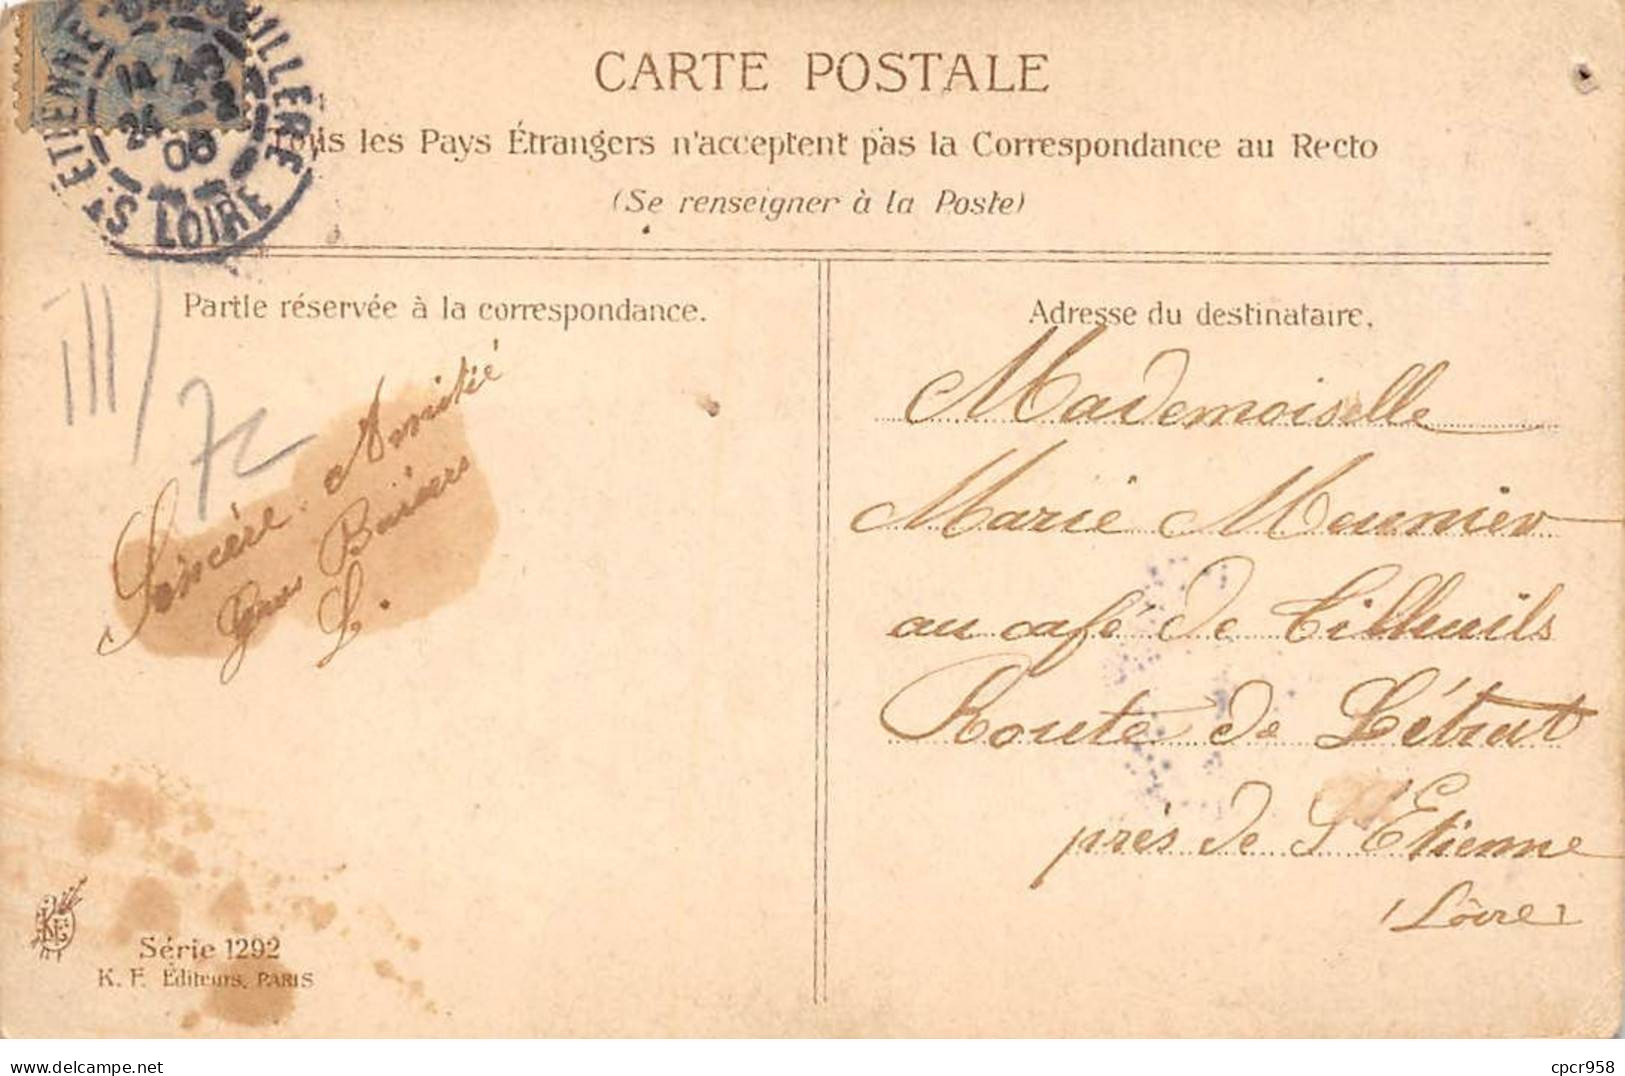 CARTE POSTALE
Tous les Pays Étrangers n'acceptent pas la Correspondance au Recto
(Se renseigner à la Poste)
ST ETIENNE-BADOUILLERE
LOIRE
Partie réservée à la correspondance.
Adresse du destinataire.
Sincère Amitié
Gros Baisers
L.
Mademoiselle
Marie Meunier
au café de Tilleuils
Route de Létrat
près de St Etienne
(Loire)
Série 1292
K. F. Éditeurs, PARIS
www.delcampe.net
cpcr958